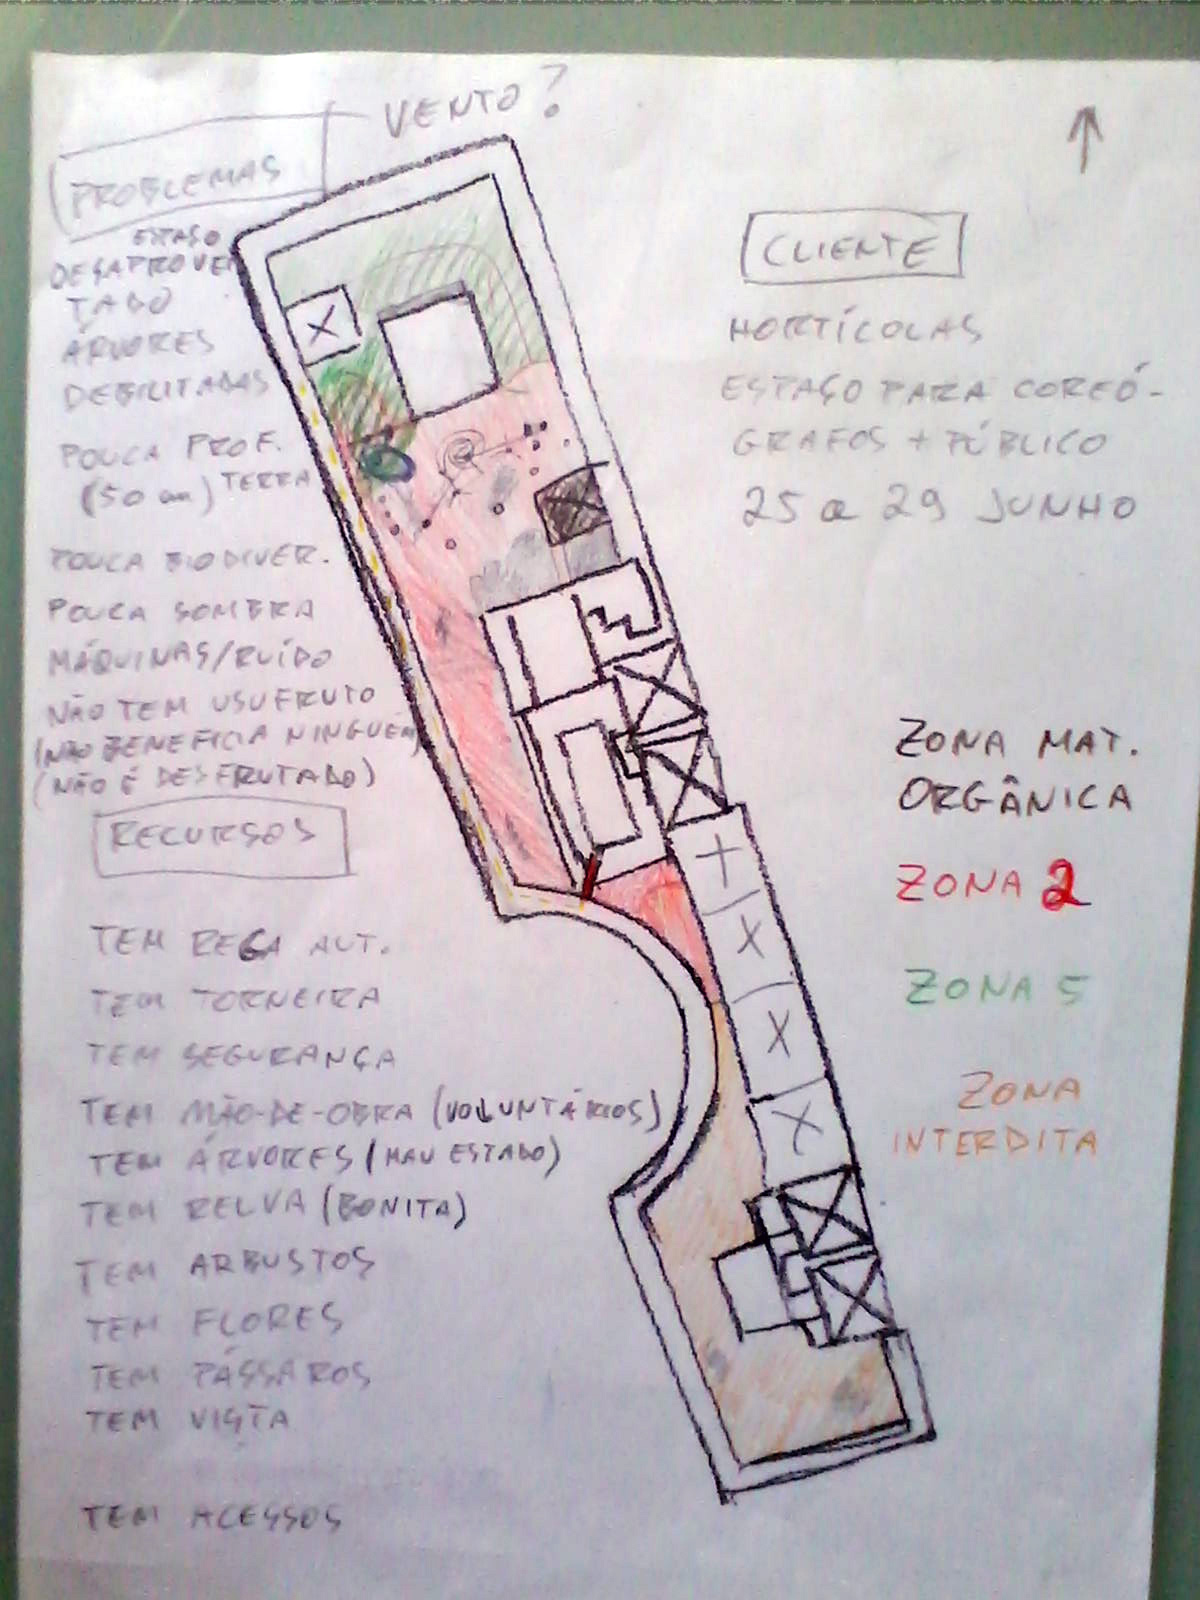 VENTO?
PROBLEMAS
ESPAÇO
DESAPROVEI
TADO
ÁRVORES
DEBILITADAS
POUCA PROF.
(50 cm) TERRA
POUCA BIODIVER.
POUCA SOMBRA
MÁQUINAS/RUÍDO
NÃO TEM USUFRUTO
(NÃO BENEFICIA NINGUÉM)
(NÃO É DESFRUTADO)
RECURSOS
TEM REGA AUT.
TEM TORNEIRA
TEM SEGURANÇA
TEM MÃO-DE-OBRA (VOLUNTÁRIOS)
TEM ÁRVORES (MAU ESTADO)
TEM RELVA (BONITA)
TEM ARBUSTOS
TEM FLORES
TEM PÁSSAROS
TEM VISTA
TEM ACESSOS
CLIENTE
HORTÍCOLAS
ESPAÇO PARA COREÓ-
GRAFOS + PÚBLICO
25 a 29 JUNHO
ZONA MAT.
ORGÂNICA
ZONA 2
ZONA 5
ZONA
INTERDITA